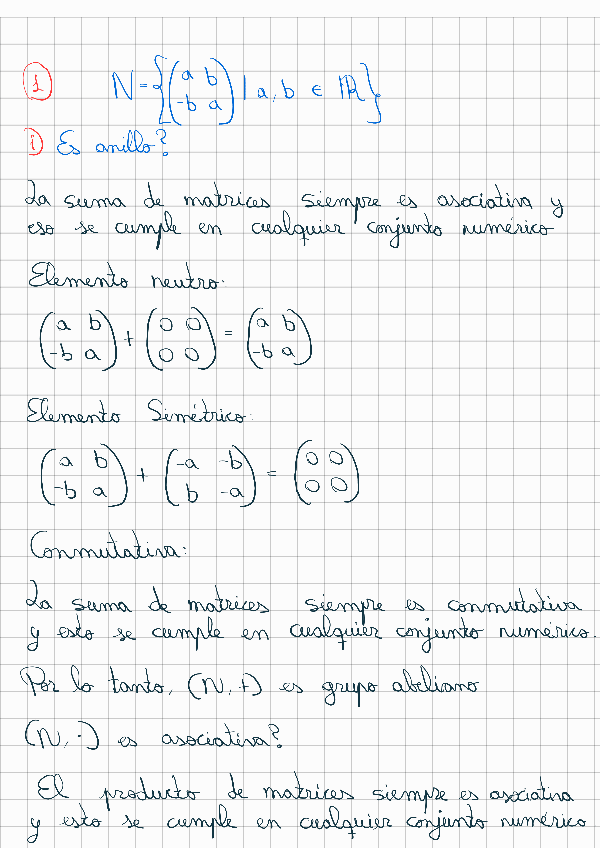 1 N = {(a b
-b a) | a, b ∈ ℝ}
i) Es anillo?
La suma de matrices siempre es asociativa y
eso se cumple en cualquier conjunto numérico
Elemento neutro:
(a b
-b a) + (0 0
0 0) = (a b
-b a)
Elemento Simétrico:
(a b
-b a) + (-a -b
b -a) = (0 0
0 0)
Conmutativa:
La suma de matrices siempre es conmutativa
y esto se cumple en cualquier conjunto numérico.
Por lo tanto, (N, +) es grupo abeliano
(N, ·) es asociativa?
El producto de matrices siempre es asociativa
y esto se cumple en cualquier conjunto numérico